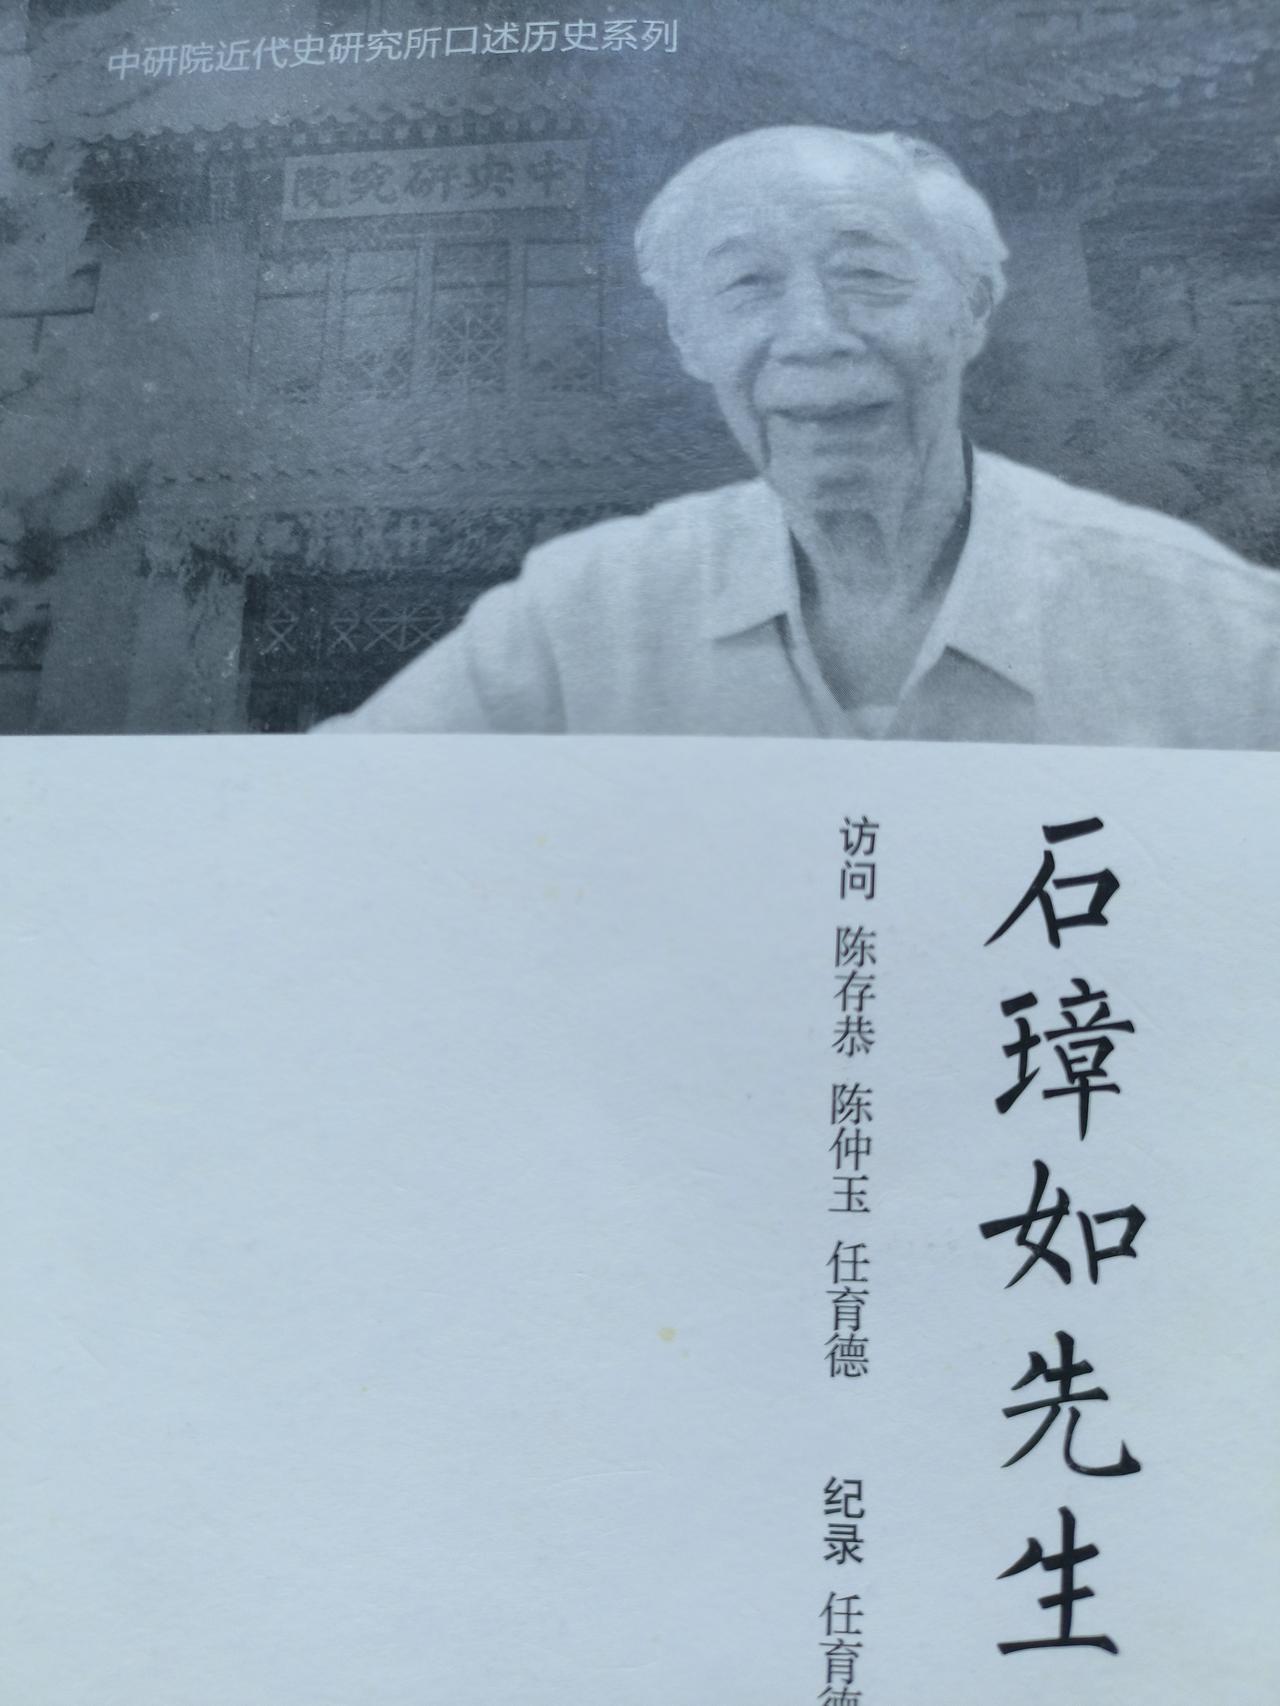 中研院近代史研究所口述历史系列
中央研究院
石璋如先生
访问 陈存恭 陈仲玉 任育德
纪录 任育德